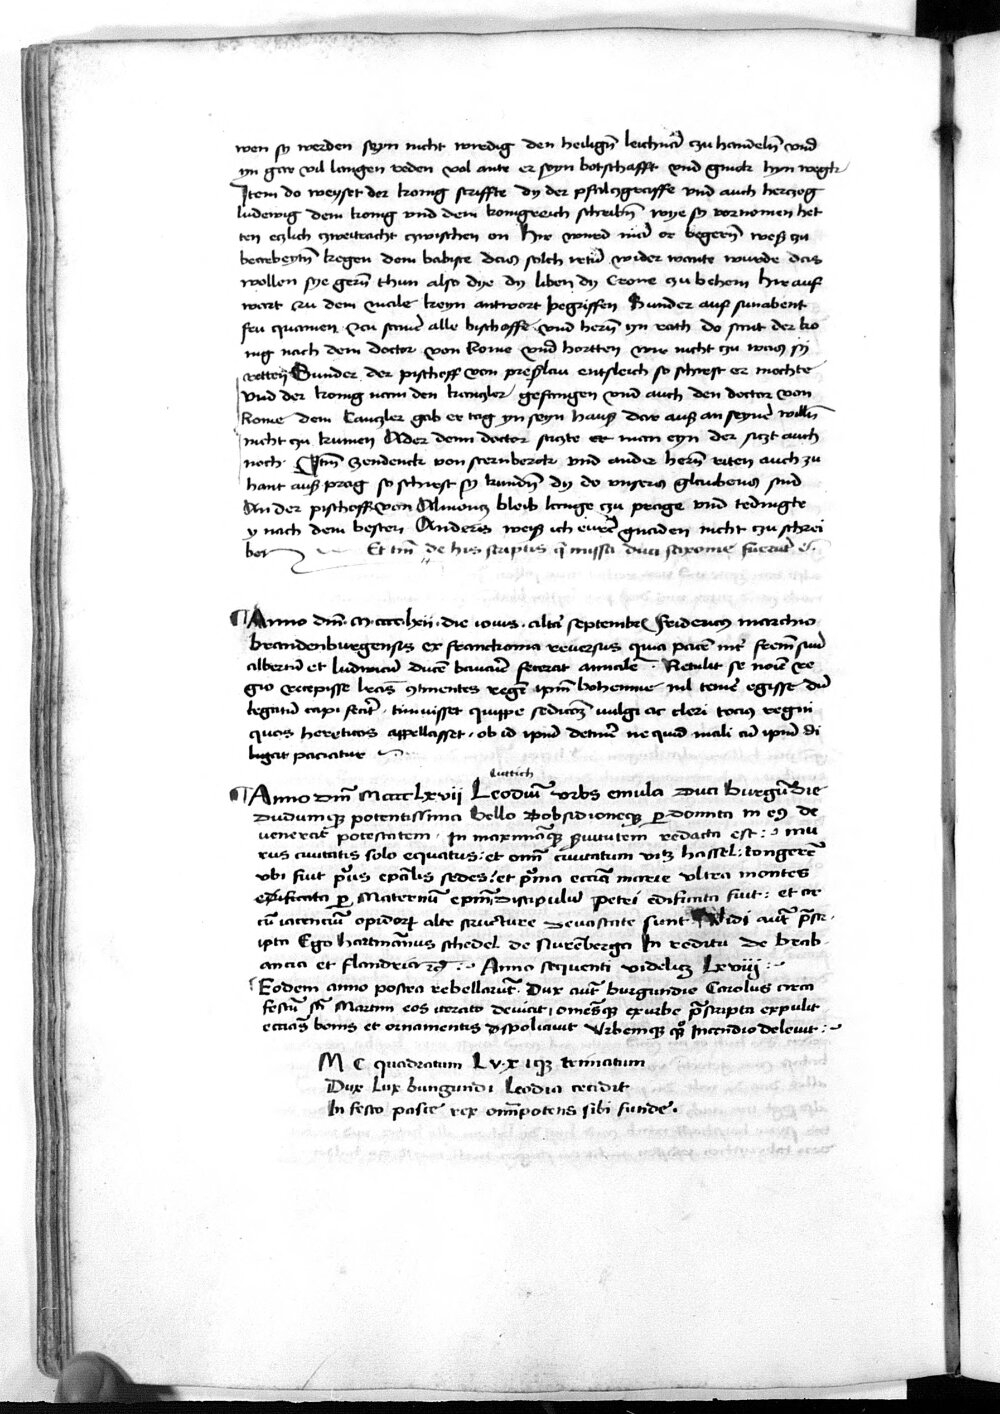 wen sy werden seyn nicht wirdig den heilign̄ leichnā czu handeln̄ vnd
yn gar vil langen reden vol ante er seyn botschafft vnd ginck hyn wegk
Item do weyset der konig scriffte dy der pfalczgraffe vnd auch herczog
ludewig dem konig vnd dem konigreich schreibn̄ wye sy vornomen het
ten eczlich czweitracht czwischen on Hir wurd nū er begern̄ weß zu
kegen dem babiste wider wante wurde das
wollen sye gern̄ thun also dye dy liben dy Crone czu behem hir auf
wart zu dem male keyn antwort begriffen Sunder auf sunabent
fru quamen alle bischoffe vnd hern̄ yn rath do sant der ko
nig nach dem doctor von Rome vnd hortten wir nicht czu was sy
retten Sunder der pischoff von preslau entsleich so schirst er mochte
Vnd der konig nam den kanczler gefangen vnd auch den doctor von
Rome dem Canczler gab er tag yn seyn hauß dar auß an seynē willn̄
nicht czu kumen Ader denn doctor saczte er man eyn der siczt auch
noch Itm̄ Zdenck von sternberck vnd ander hern̄ riten auch zu
hant auß prag so schirst sy kundn̄ dy do vnsers glaubens sind
An der pischoff von Almoncz bleib lange czu prage vnd tedingte
y nach dem besten Anders weiß ich ewer gnaden nicht czu schrei
ben Et tm̄ de his scriptis q̄ missa duci saxonie fuerāt ec̄.
Anno dn̄i Mcccclxii die iouis altā septembr̄ fridericus marchio
brandenburgensis ex franckonia reuersus quia pacē int̄ frem̄ suū
albertū et ludwicū ducē bauarie fecerat annale Retulit se nomē re
gio recepisse lrās ꝯtinentes regē ipm̄ bohemie nil temē egisse dū
legatū capi fecit timuisset quippe sedicōem uulgi ac cleri tocius regni
quos hereticos appellasset ob id ipm̄ detinē ne quid mali cū ipm̄ di
ligat paciatur
Luttich
Anno dn̄i Mcccclxvii Leodiū vrbs emula duci burgundie
dudumq potentissima bello obsidioneq ꝑdomita in eius de
venerat potestatem In maximāq seruitutem redacta est: mu
rus ciuitatis solo equatus: et om̄ ciuitatum vitz hassel: tongerē
vbi fuit prius ep̄alis sedes: et prīma ecclia marie vltra montes
edificata ꝑ Maternū ep̄m discipulū Petri edificata fuit: et ce
tū iacenciū opidorꝝ alte structure deuastate sunt vidi aut pscr
ipta Ego hartmannus schedel de Nurēberga In reditu de brab
ancia et flandria ꝛc̄: Anno sequenti videlicz Lxviij:
Eodem anno postea rebellarūt Dux aūt burgundie Carolus circa
festū sc̄i Martini eos iterato deuicit, omēsq ex vrbe p̄scripta expulit
ecclias bonis et ornamentis dispoliauit Vrbemq qꝫ Incendio deleuit:
M C quadratum L v x iqꝫ trinatum
Dux Lux burgundi Leodia cecidit
In festo pasce rex omīpotens sibi funde.